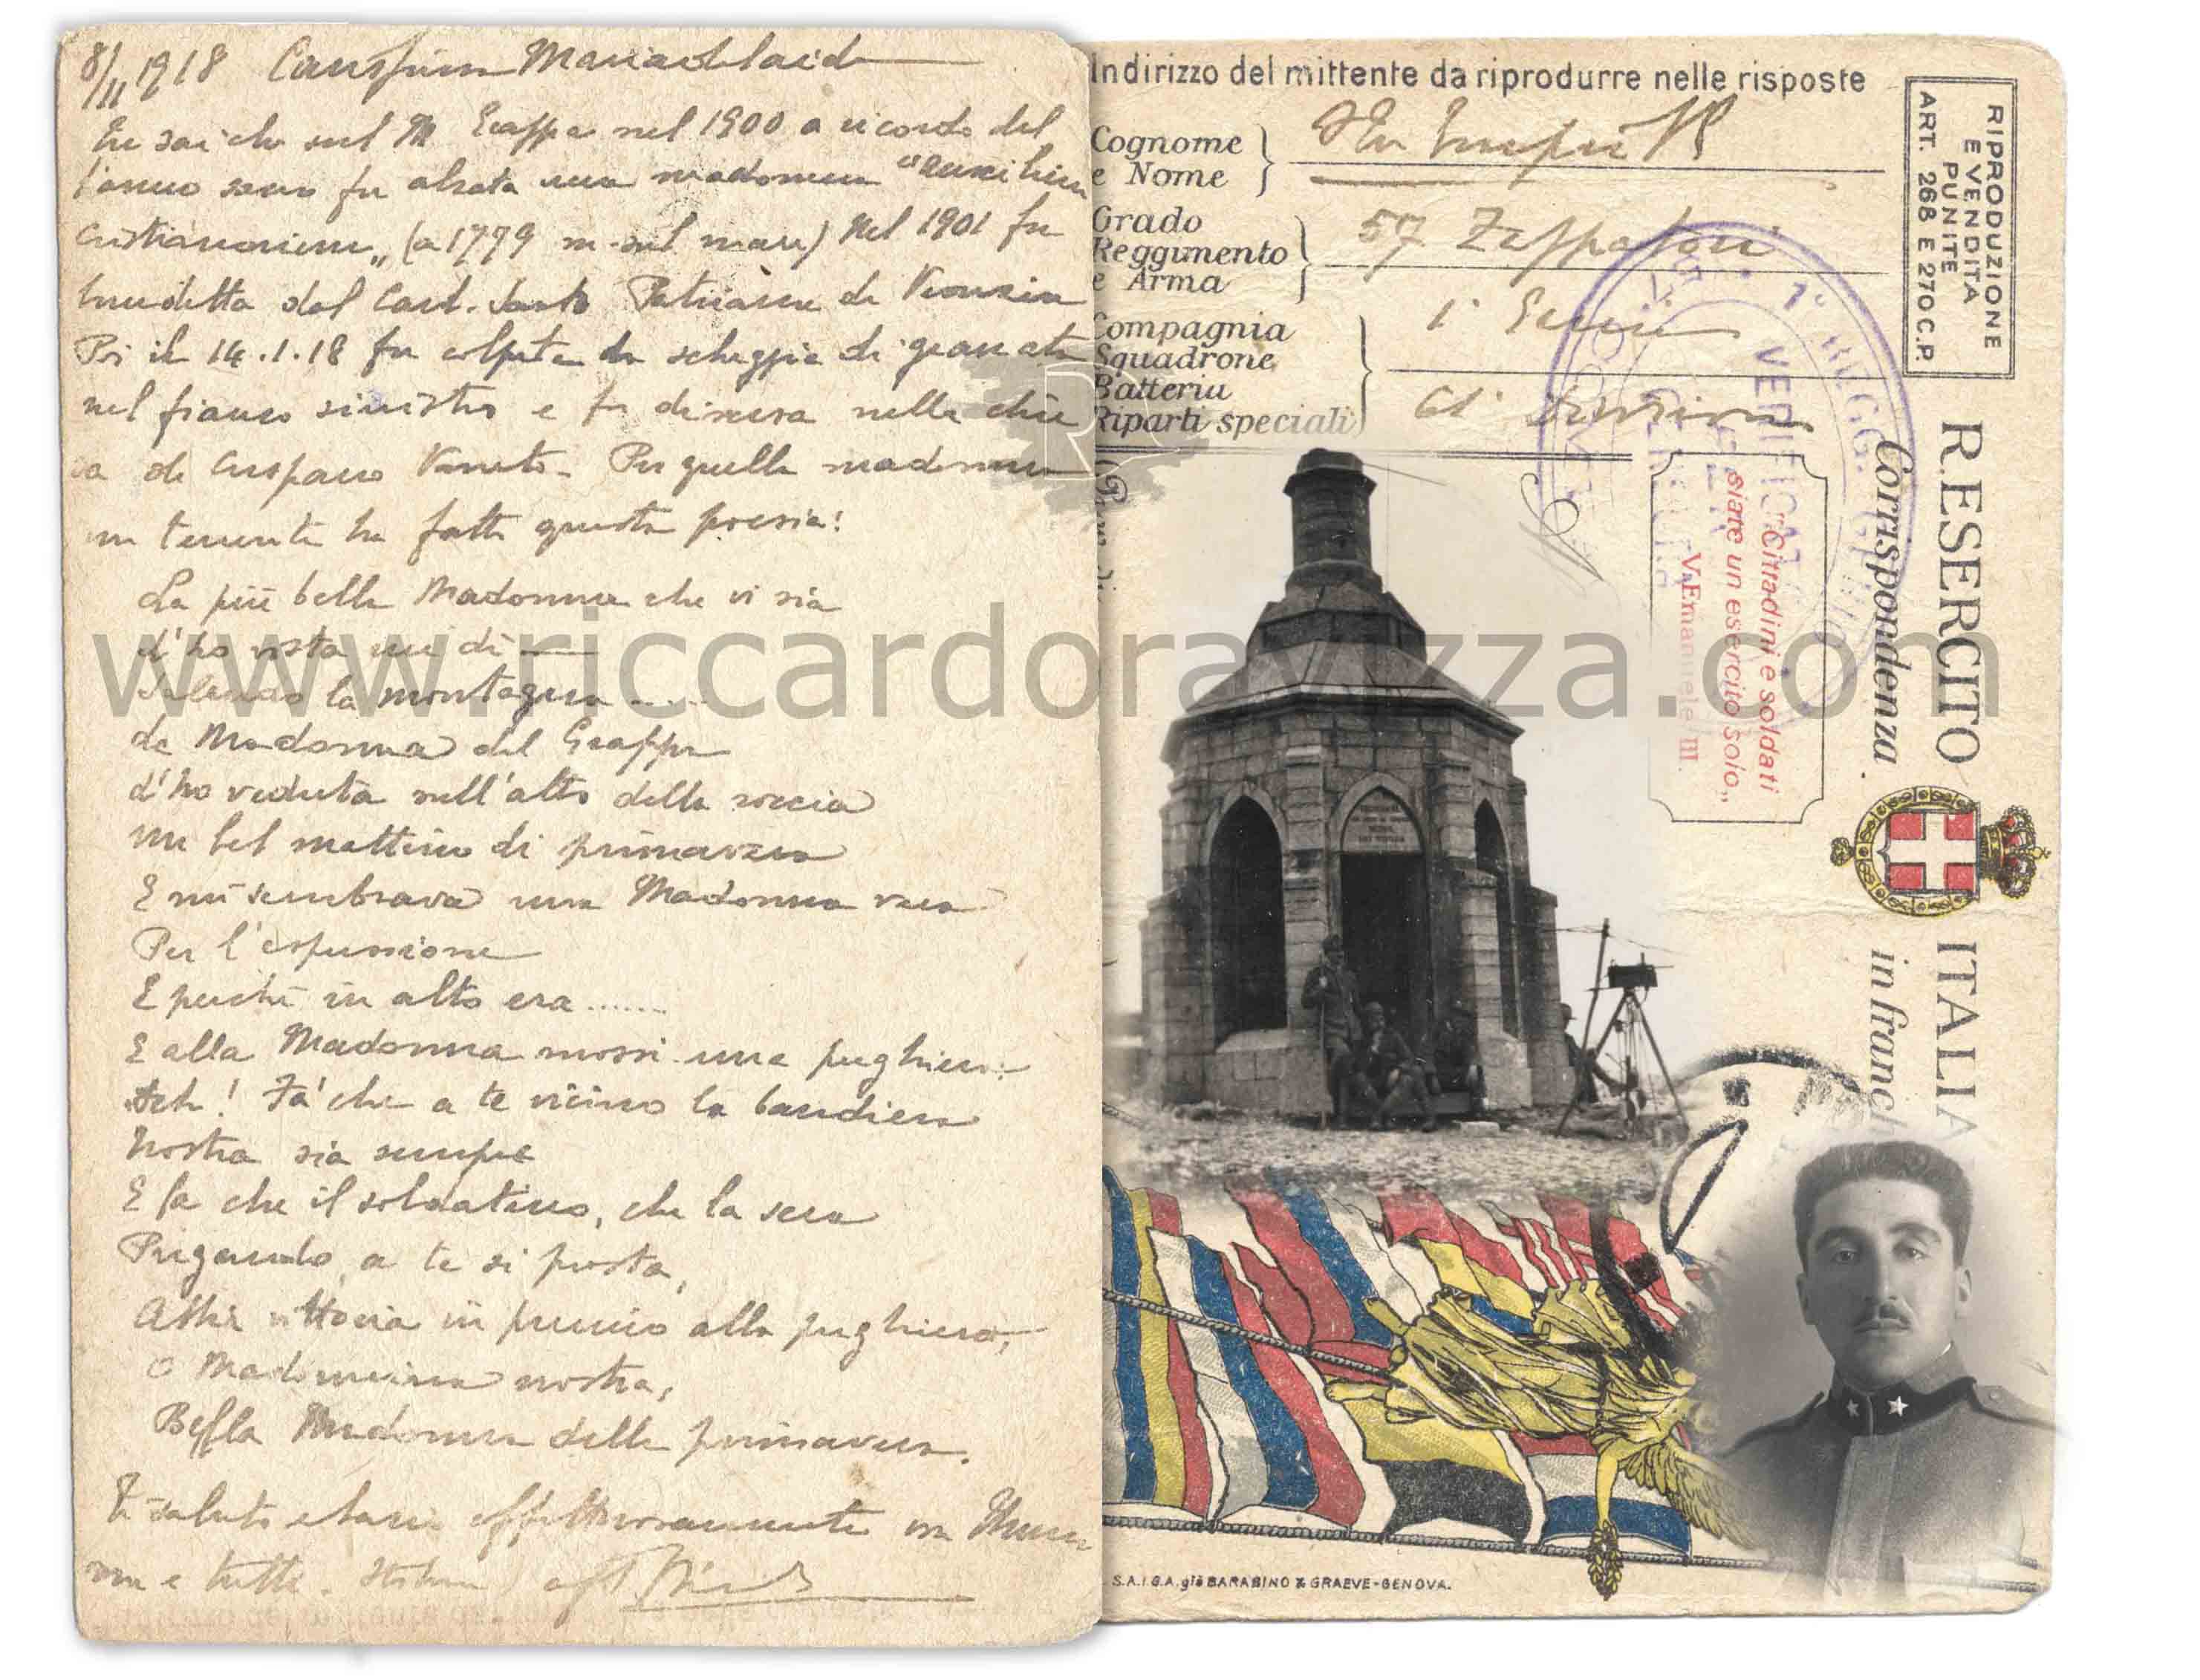 8/11 1918 Mariadelaide
Tu sai che sul M Grappa nel 1900 a ricordo del
l'anno santo fu alzata una madonna "auxilium
cristianorum" (a 1779 m. sul mare) Nel 1901 fu
benedetta dal Card. Sarto Patriarca di Venezia
Poi il 14.1.18 fu colpita da scheggia di granata
nel fianco sinistro e fu discesa nella chie
sa di Crespano Veneto. Per quella madonna
un tenente ha fatto questa poesia:
La più bella Madonna che vi sia
l'ho vista un dì
Salendo la montagna .....
La Madonna del Grappa
L'ho veduta sull'alto della roccia
un bel mattino di primavera
E mi sembrava una Madonna vera
Per l'espressione
E perché in alto era ......
E alla Madonna mossi una preghiera:
Deh! Fa' che a te vicino la bandiera
Nostra sia sempre
E fa che il soldatino, che la sera
Pregando a te si prostra,
Abbia vittoria in premio alla preghiera,
O Madonnina nostra,
Bella Madonna della primavera.
Ti saluto affettuosamente
ma e tutti.
Indirizzo del mittente da riprodurre nelle risposte
Cognome
e Nome
Grado
Reggimento
e Arma
57 Zappatori
Compagnia
Squadrone
Batteria
Riparti speciali
1° Genio
61° Divisione
RIPRODUZIONE
E VENDITA
PUNITE
ART. 268 E 270 C.P.
R. ESERCITO ITALIA
Corrispondenza in franch
1° REGG.
VERIFICAT
"Cittadini e soldati
siate un esercito solo„
V. Emanuele III.
S.A.I.G.A. già BARABINO & GRAEVE-GENOVA.
www.riccardoravizza.com